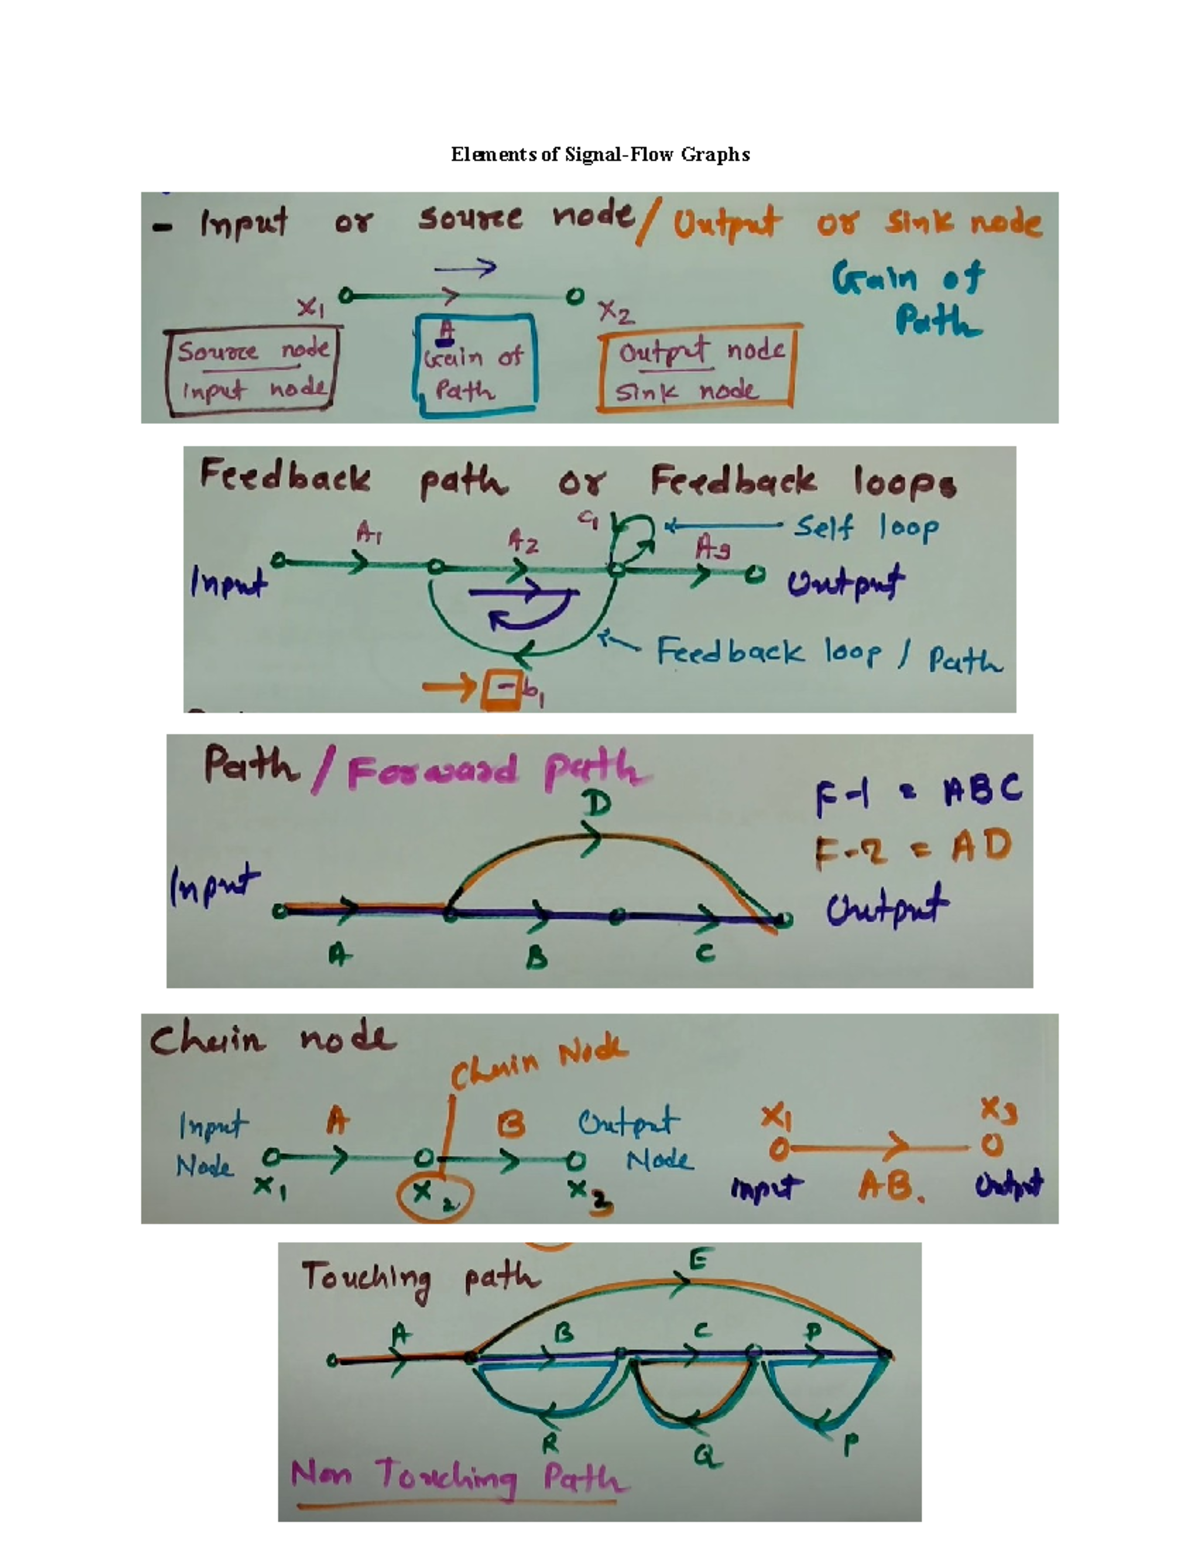 Elements of Signal-Flow Graphs
- Input or source node / Output or sink node
Gain of
Path
X1 X2
A
Source node
Input node
Gain of
Path
Output node
Sink node
Feedback path or Feedback loops
A1 A2 c1 A3
Self loop
Input Output
Feedback loop / Path
-b1
Path / Forward path
D
F-1 = ABC
F-2 = AD
Input Output
A B C
Chain node
Chain Node
Input
Node
A B
Output
Node
X1 X2 X3
X1 X3
Input AB. Output
Touching path
E
A B C P
R Q P
Non Touching Path